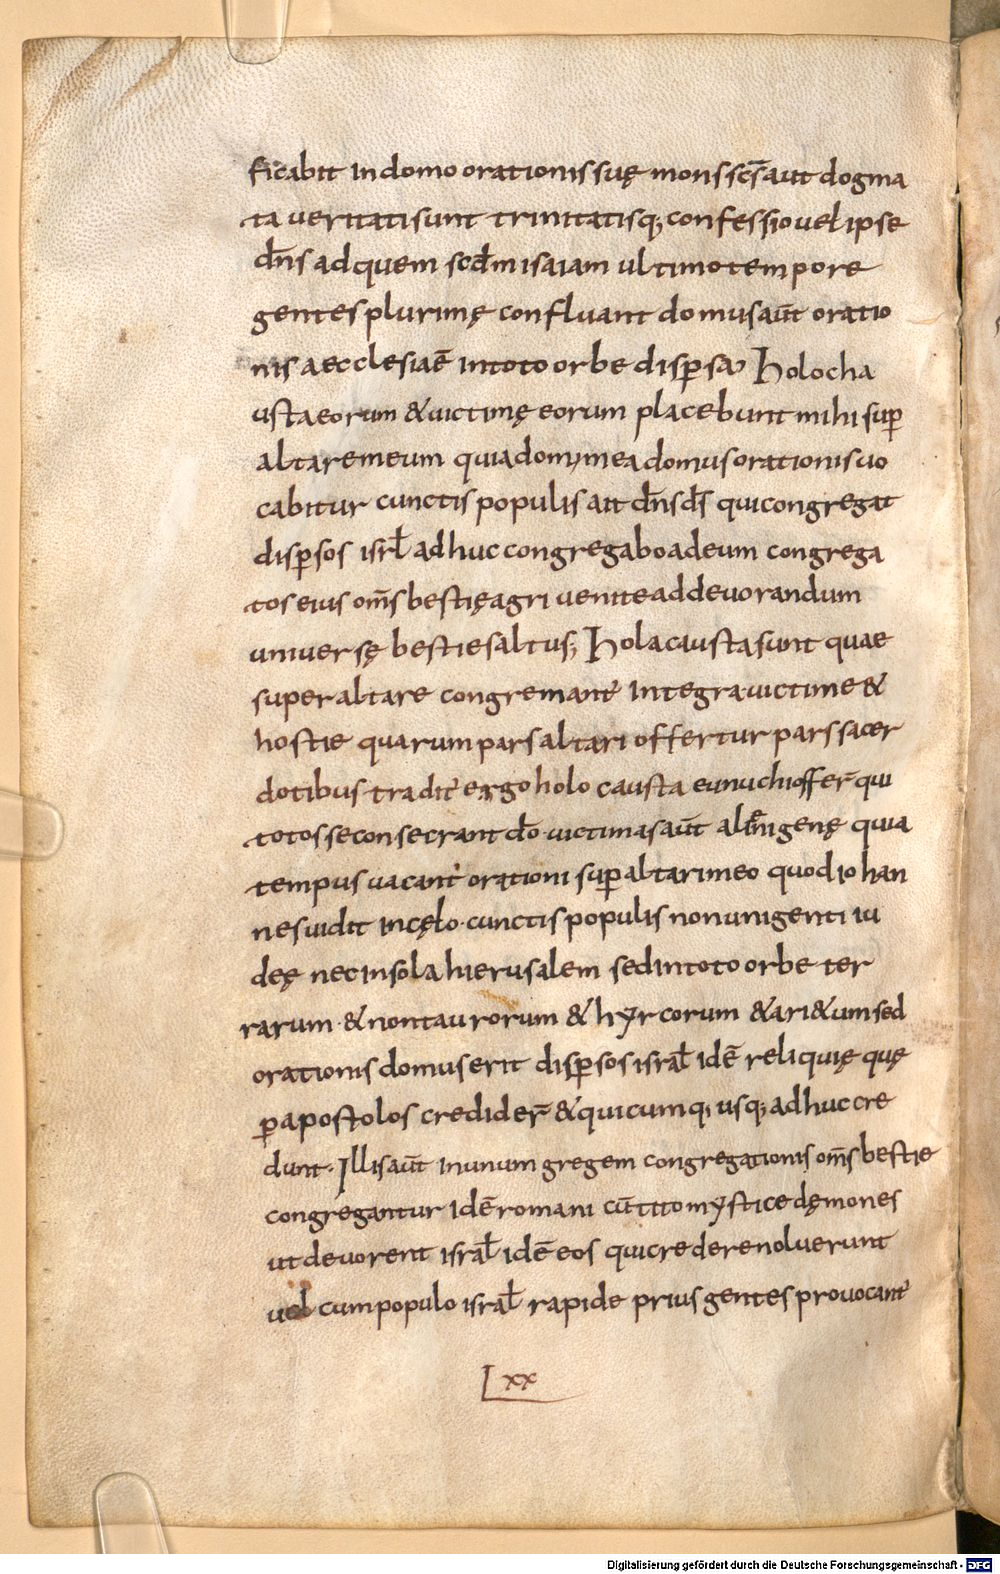 ficabit in domo orationis suę mons scs̄ aut dogma
ta veritati sunt trinitatisq; confessio vel ipse
dn̄s ad quem scdm̄ isaiam ultimo tempore
gentes plurimę confluant domus aūt oratio
nis aecclesia ē in toto orbe disp̱sa Holocha
usta eorum & uictimę eorum placebunt mihi sup̱
altare meum quia domus mea domus orationis uo
cabitur cunctis populis ait dn̄s ds̄ qui congregat
disp̱sos isrl̄ adhuc congregabo ad eum congrega
tos eius om̄s bestię agri venite ad devorandum
universę bestie saltus; Holacausta sunt quae
super altare congremant᷑ integra uictime &
hostie quarum pars altari offertur pars sacer
dotibus tradit᷑ ergo holocausta eunuchi offer̄ qui
totos se consecrant dō uictimas aūt alienigenę quia
tempus vacant orationi sup̱ altari meo quod iohan
nes uidit in cęlo · cunctis populis non uni genti iu
deę nec in sola hierusalem sed in toto orbe ter
rarum · & non taurorum & hyrcorum & ari&um sed
orationis domus erit disp̱sos isrl̄ id ē reliquię quę
p̱ apostolos credider̄ & quicumq; usq; adhuc cre
dunt · Illis aūt in unum gregem congregationis om̄s bestie
congregantur id ē romani cū tito mystice dęmones
ut devorent isrl̄ id ē eos qui credere noluerunt
vel cum populo isrl̄ rapide prius gentes provocant᷑
Lxx
Digitalisierung gefördert durch die Deutsche Forschungsgemeinschaft - DFG